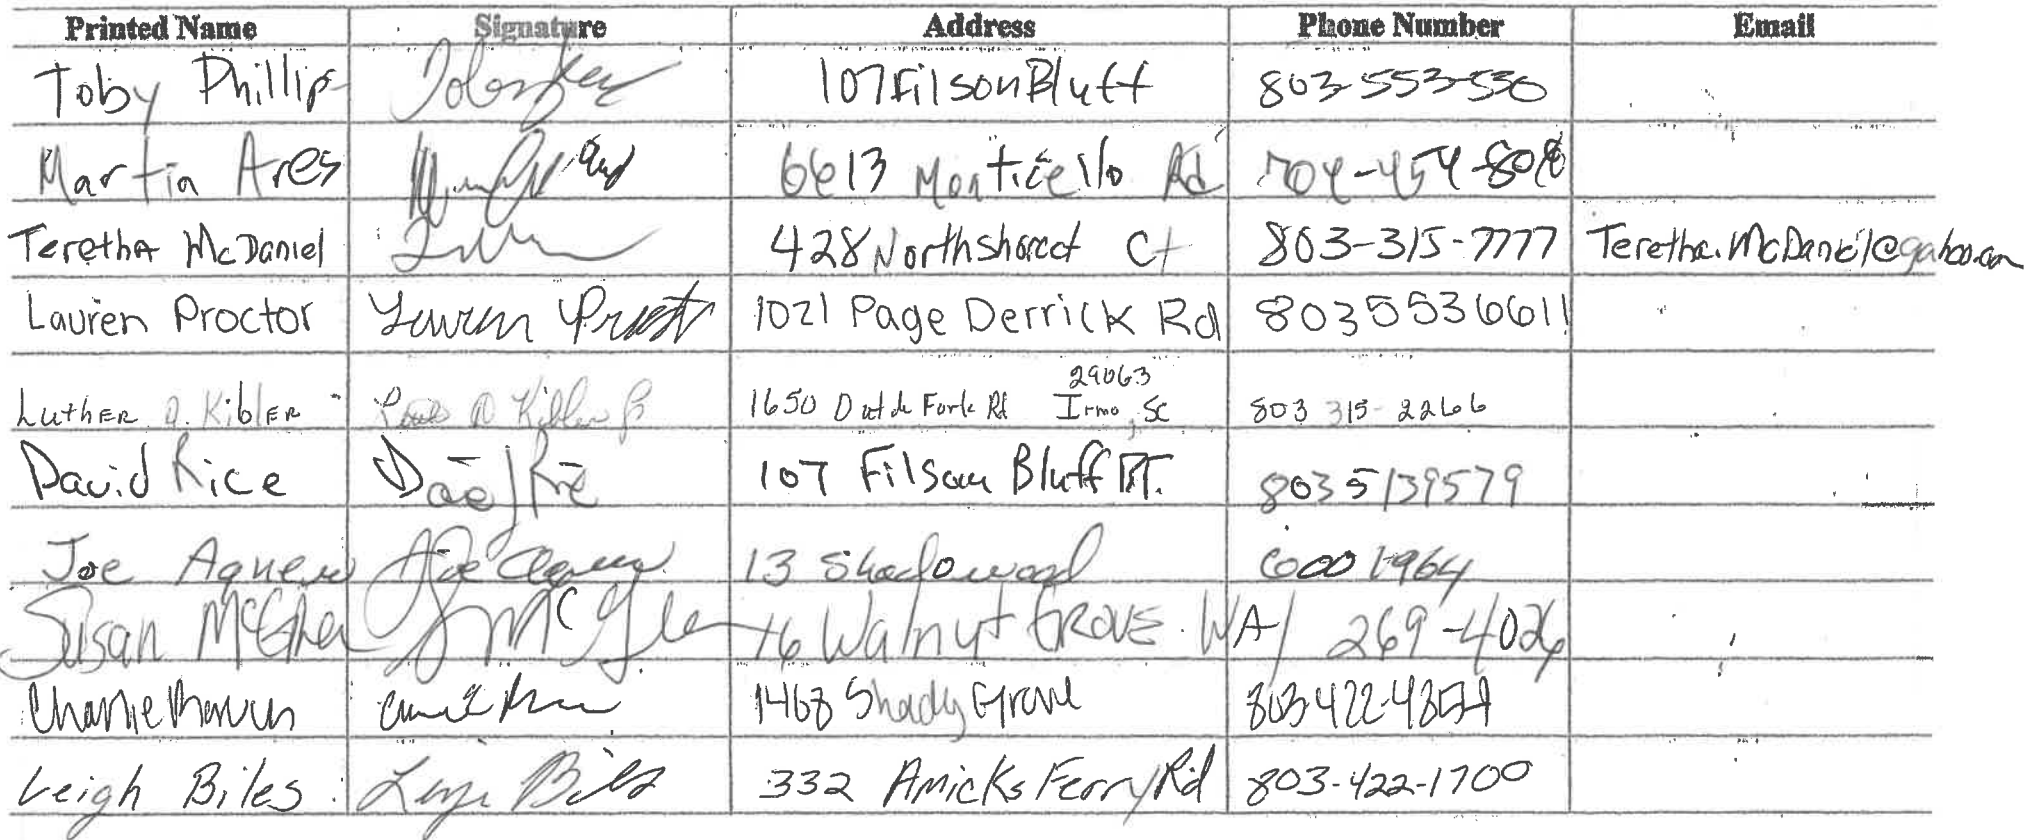 Printed Name Signature Address Phone Number Email
Toby Phillips 107 Filson Bluff 803-553-550
Martin Ares 6613 Monticello Rd 704-454-80
Teretha McDaniel 428 Northshore Ct 803-315-7777 Teretha.McDaniel@yahoo.com
Lauren Proctor Lauren Proctor 1021 Page Derrick Rd 8035536611
29063
Luther A. Kibler 1650 Dutch Fork Rd Irmo, SC 803 315-2266
David Rice 107 Filson Bluff PT. 8035139579
Joe Agnew Joe Agnew 13 Shadowood 600 1964
Susan McGhee 16 Walnut GROVE WAY 269-4026
Charlie 1468 Shady Grove 803-422-48
Leigh Biles Leigh Biles 332 Amicks Ferry Rd 803-422-1700